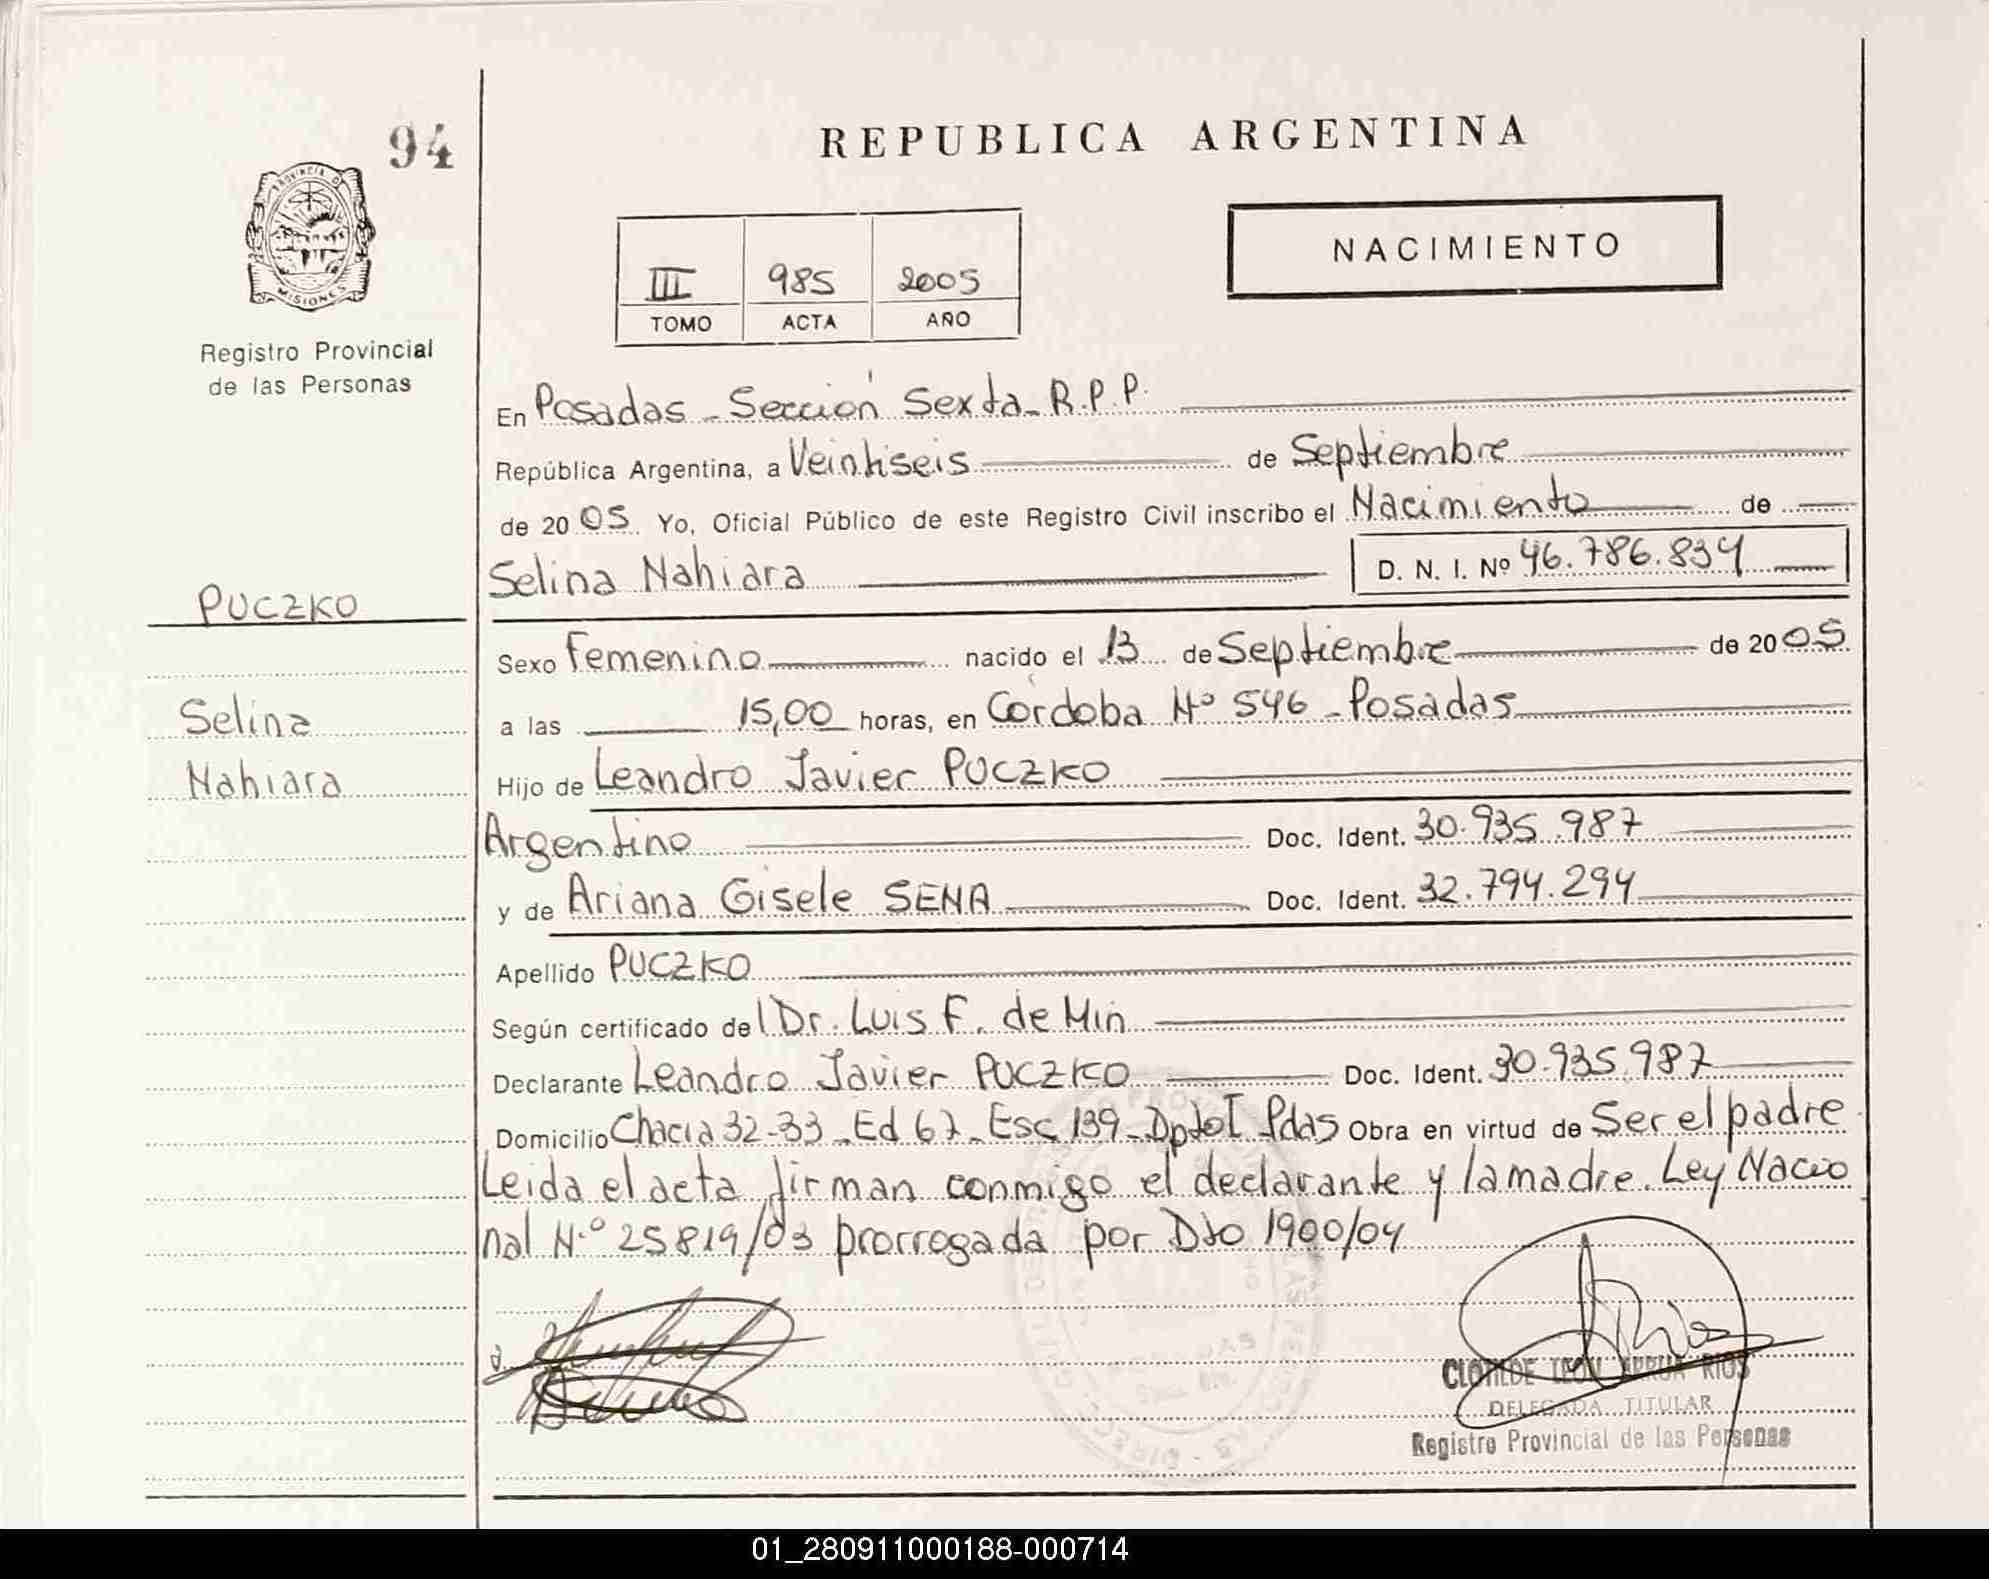 94
REPUBLICA ARGENTINA
PROVINCIA DE
MISIONES
Registro Provincial
de las Personas
III 985 2005
TOMO ACTA AÑO
NACIMIENTO
En Posadas - Sección Sexta - R.P.P.
República Argentina, a Veintiseis de Septiembre
de 20 05 Yo, Oficial Público de este Registro Civil inscribo el Nacimiento de
Selina Nahiara D. N. I. Nº 46.786.834
PUCZKO
Sexo Femenino nacido el 13 de Septiembre de 20 05
Selina
a las 15,00 horas, en Córdoba Nº 546 - Posadas
Nahiara
Hijo de Leandro Javier PUCZKO
Argentino Doc. Ident. 30.935.987
y de Ariana Gisele SENA Doc. Ident. 32.794.294
Apellido PUCZKO
Según certificado del Dr. Luis F. de Min
Declarante Leandro Javier PUCZKO Doc. Ident. 30.935.987
Domicilio Chacra 32-33 - Ed 67 - Esc 139 - Dpto I Pdas Obra en virtud de Ser el padre
Leida el acta firman conmigo el declarante y la madre. Ley Nacio
nal N.º 25819/03 prorrogada por Dto 1900/04
CLOTILDE LEON RIOS
DELEGADA TITULAR
Registro Provincial de las Personas
01_280911000188-000714